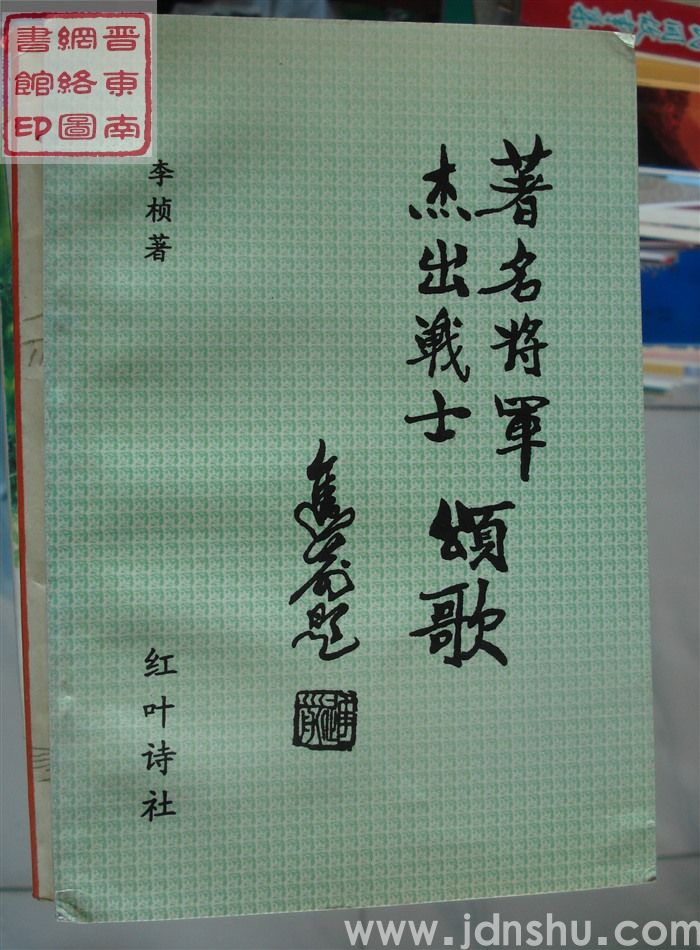 晋東南
網絡圖
書館印
著名將軍
杰出戰士
頌歌
李桢著
红叶诗社
www.jdnshu.com